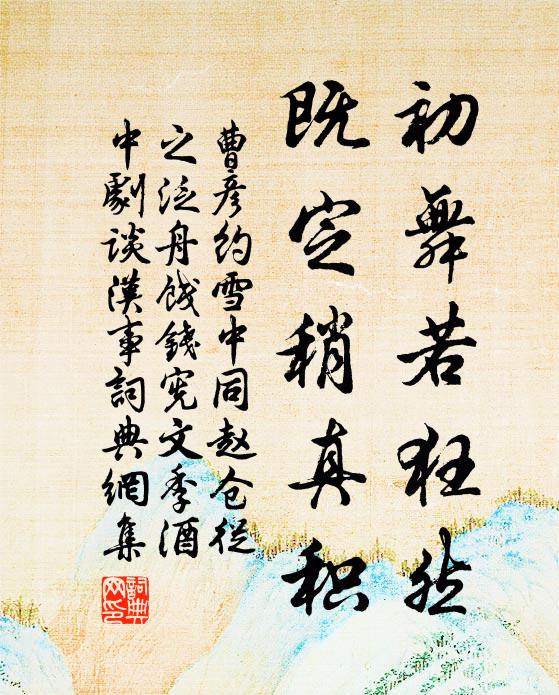 初舞若狂然
既定稍真积
曹彦约雪中同赵仓从
之泛舟饯錢宪文季酒
中劇谈漢事詞典網集
詞典
网印